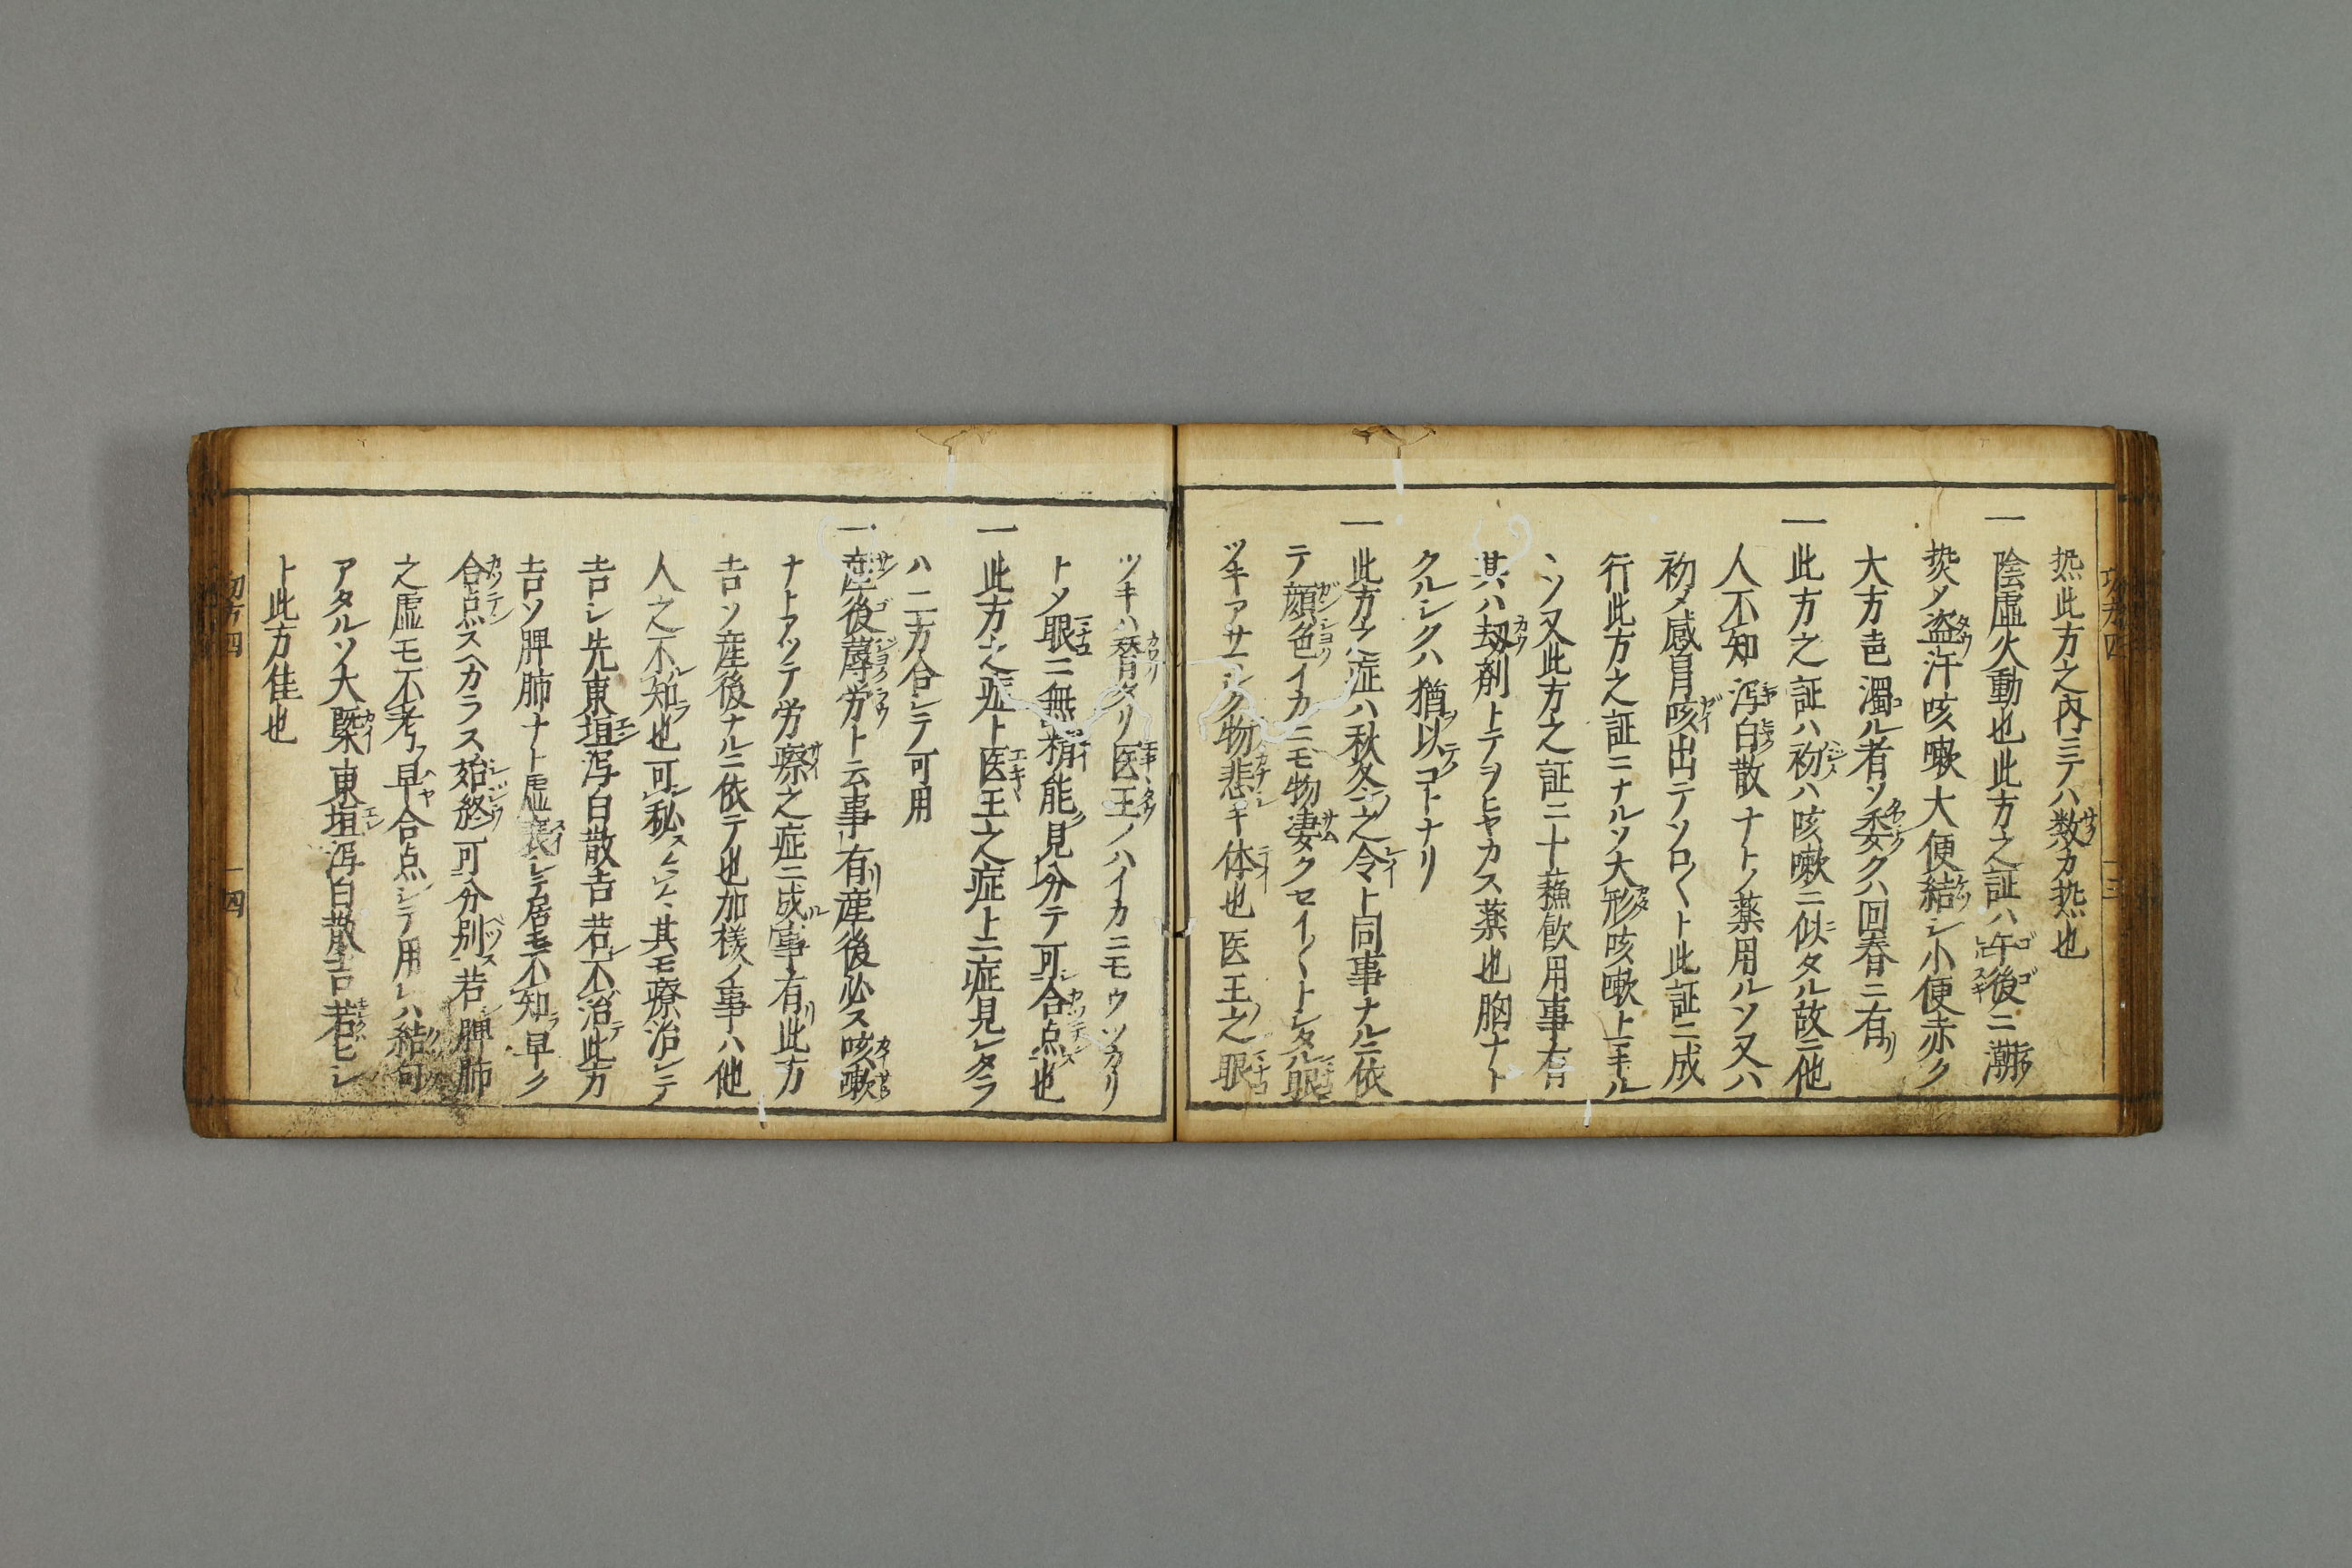 熱此方之内ニテハ数カ熱也
一陰虚火動也此方之証ハ午後ニ潮
熱メ盗汗咳嗽大便結シ小便赤ク
大方色濁ル者ソ委クハ回春ニ有
一此方之証ハ初ハ咳嗽ニ似タル故ニ他
人不知瀉白散ナトノ薬用ルソ又ハ
初メ感冒咳出テソロ〱ト此証ニ成
行此方之証ニナルソ大形咳嗽上キル
ヽソ又此方之証ニ十蘓飲用事有
其ハ劫剤トテヲヒヤカス薬也胸ナト
クルシクハ猶以コトナリ
一此方之症ハ秋冬之令ト同事ナルニ依
テ顔色イカニモ物凄クセイ〱トシタル眼
ツキアサマシク物悲キ体也医王之眼
ツキハ替タリ医王ノハイカニモウツカリ
トソ眼ニ無精能見分テ可合点也
一此方之症ト医王之症ト二症見レタラ
ハ二方合シテ可用
一産後蓐労ト云事有産後必ス咳嗽
ナトアツテ労瘵之症ニ成事有此方
吉ソ産後ナルニ依テ也加様ノ事ハ他
人之不知也可秘〱ヽ其モ療治シテ
吉シ先東垣瀉白散吉若不治此方
吉ソ脾肺ナト虚衰シテ居モ不知早ク
合点スヘカラス始終可分別若脾肺
之虚モ不考早合点シテ用レハ結句
アタルソ大槩東垣瀉白散吉若ヒシ
ト此方佳也
切方四
十四